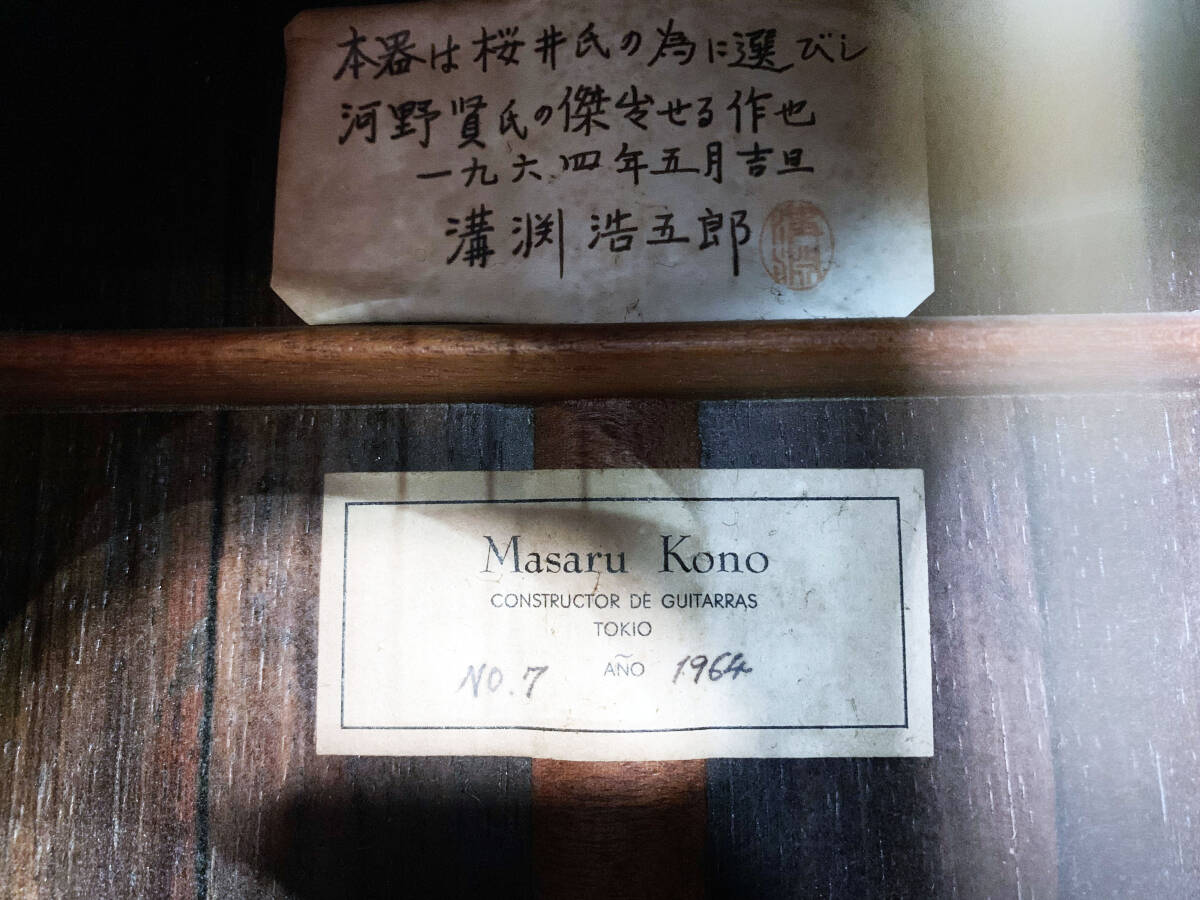 本器は桜井氏の為に選びし
河野賢氏の傑出せる作也
一九六四年五月吉旦
溝渕浩五郎
Masaru Kono
CONSTRUCTOR DE GUITARRAS
TOKIO
NO. 7 AÑO 1964